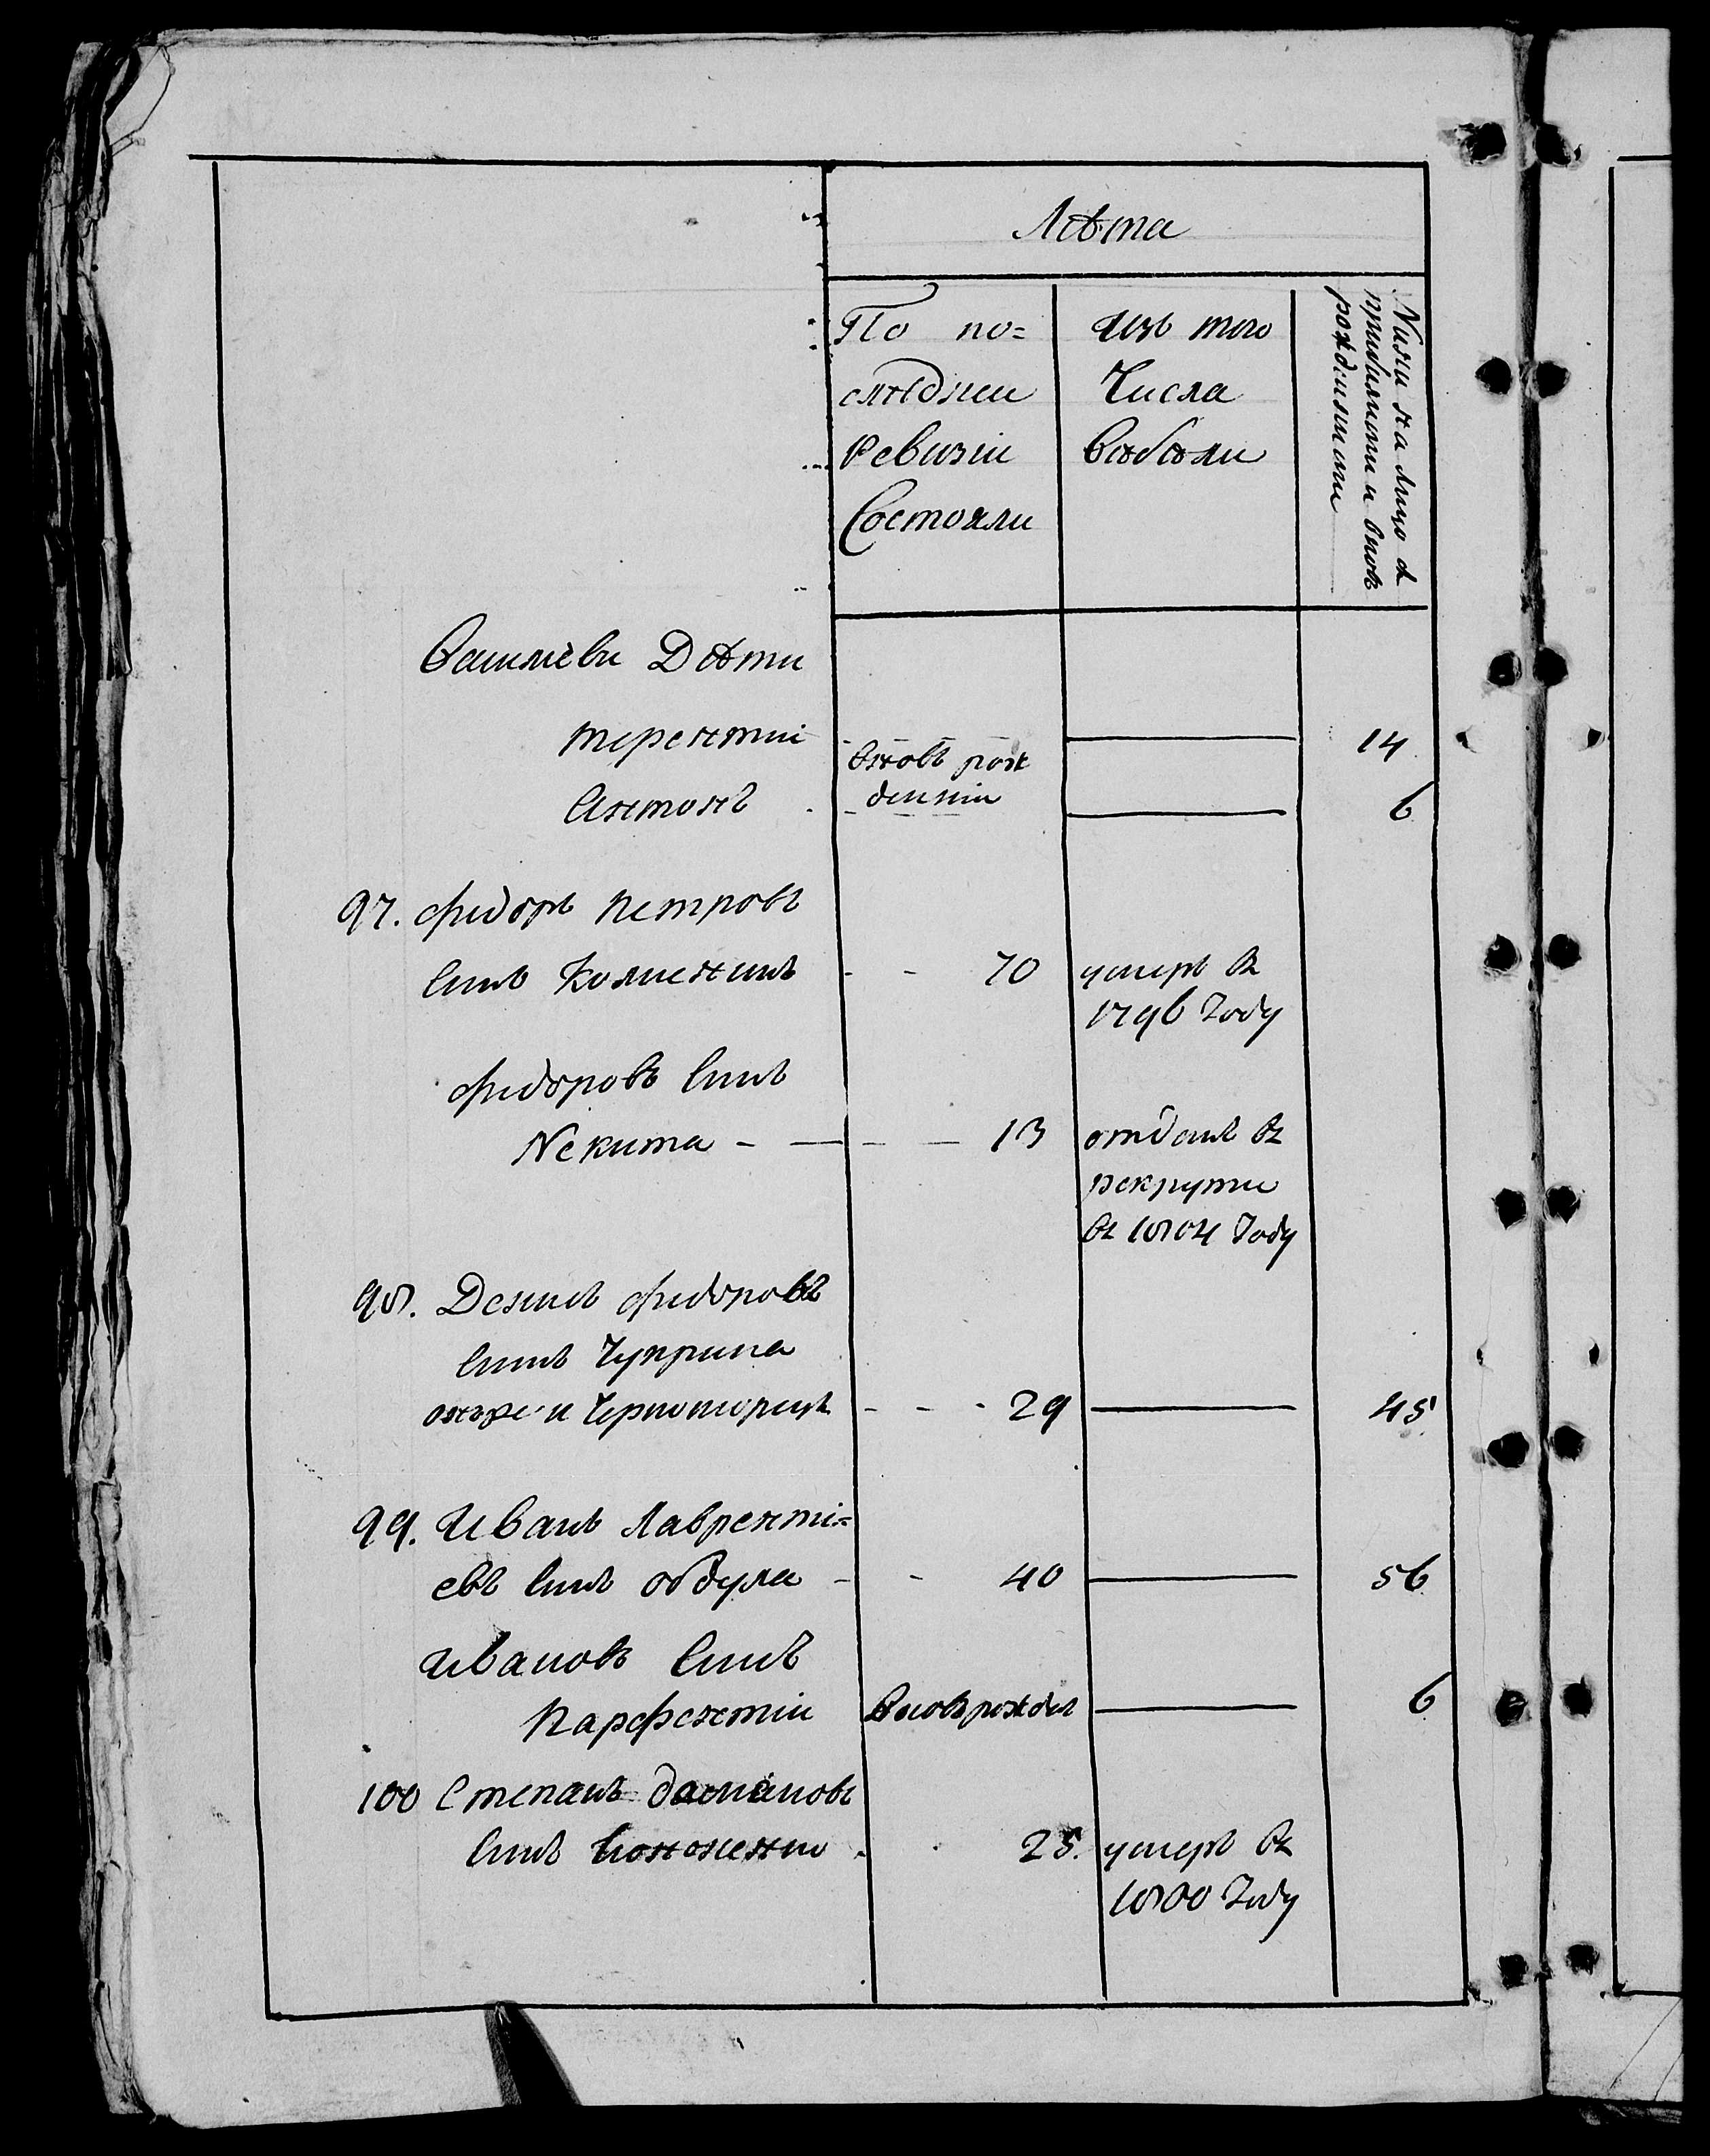 Лѣта
По по=
слѣднеи
Ревизіи
Состояли
изъ того
Числа
выбыли
Ныне на лицо съ
прибылыми и вновь
рожденными
Василѣвы Дѣти
терентіи вновь рож 14
деніи
Антонъ 6
97. Федоръ петровъ
Сынъ 70 умеръ въ
1796 Году
Федоровъ Сынъ
Некита 13 отданъ въ
рекруты
въ 1804 Году
98. Денисъ Федоровъ
Сынъ Чуприна
онъже и Черноморецъ 29 45
99. Иванъ Лаврентi=
евъ Сынъ обдула 40 56
Ивановъ Сынъ
парфентіи Вновьрожден 6
100 Степанъ даміановъ
Сынъ кононенко 25. умеръ въ
1800 Году